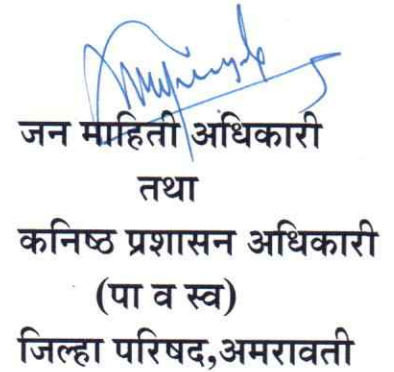 जन माहिती अधिकारी
तथा
कनिष्ठ प्रशासन अधिकारी
(पा व स्व)
जिल्हा परिषद,अमरावती